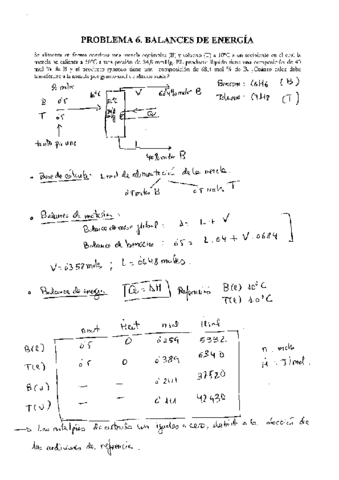 PROBLEMA 6. BALANCES DE ENERGÍA
Se alimenta en forma continua una mezcla equimolar [B] y tolueno [T] a 10°C a un recipiente en el cual la
mezcla se calienta a 50°C a una presión de 34,8 mmHg. El producto líquido tiene una composición de 40
mol % de B y el producto gaseoso tiene una composición de 68,4 mol % de B. ¿Cuánto calor debe
transferirse a la mezcla por gramo-mol de alimentación?
Benceno: C6H6 (B)
Tolueno: C7H8 (T)
V
B 0.5
T 0.5
L
• Base de cálculo: 1 mol de alimentación de la mezcla
0.5 moles B 0.5 moles T
• Balance de materia:
Balance de masa global: 1 = L + V
Balance de benceno: 0.5 = L·0.4 + V·0.684
V = 0.352 mols ; L = 0.648 moles.
• Balance de energía Q = ΔH Referencia B(l) 10°C
T(l) 10°C
B(l) 0.5 0 0.259 5332
T(l) 0.5 0 0.389 6340
B(v) — — 0.241 37520
T(v) — — 0.111 42930
→ Las entalpías de entrada son iguales a cero, debido a la elección de
las condiciones de referencia.